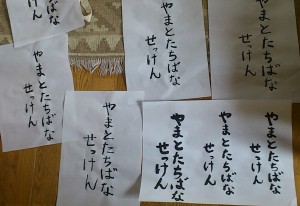 たちばな
せっけん
やまとたちばな
せっけん
やまとたちばな
せっけん
やまとたちばな
せっけん
やまとたちばな
せっけん
やまとたちばな
せっけん
やまとたちばな
せっけん